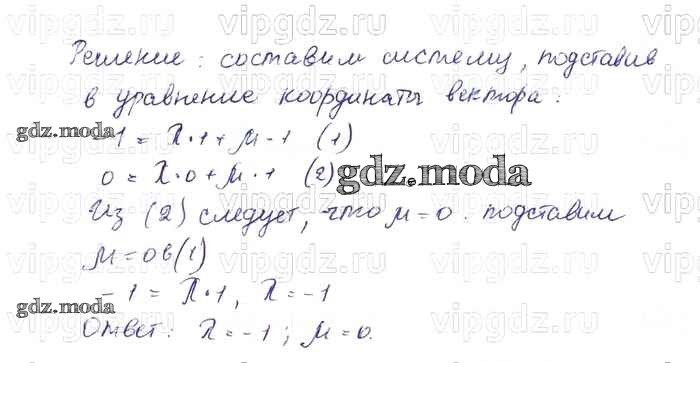 vipgdz.ru vipgdz.ru vipgdz.ru vipgdz.ru
Решение: составим систему, подставив
в уравнение координаты вектора:
gdz.moda
-1 = λ·1 + μ·1 (1)
0 = λ·0 + μ·1 (2)
gdz.moda
Из (2) следует, что μ = 0. подставим
μ = 0 в (1)
-1 = λ·1, λ = -1
gdz.moda
Ответ: λ = -1; μ = 0.
vipgdz.ru vipgdz.ru vipgdz.ru vipgdz.ru